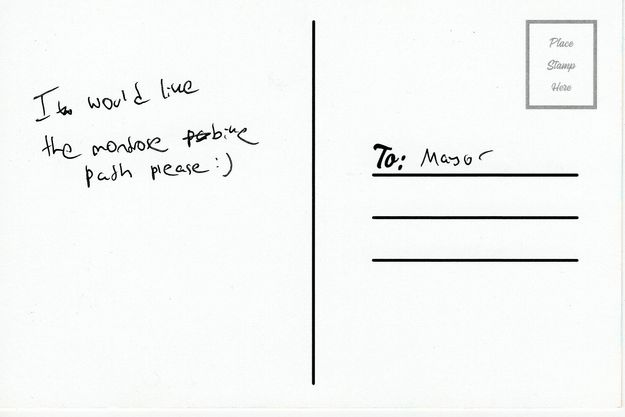 I would like
the montrose bike
path please :)
Place
Stamp
Here
To: Mayor